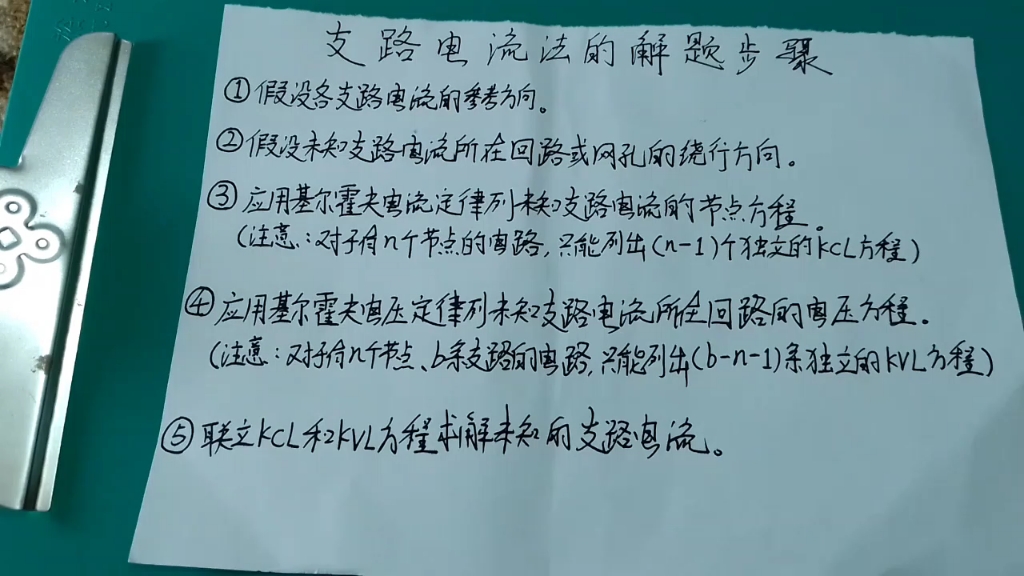 支路电流法的解题步骤
①假设各支路电流的参考方向。
②假设未知支路电流所在回路或网孔的绕行方向。
③应用基尔霍夫电流定律列未知支路电流的节点方程。
(注意:对于有n个节点的电路,只能列出(n-1)个独立的KCL方程)
④应用基尔霍夫电压定律列未知支路电流所在回路的电压方程。
(注意:对于有n个节点、b条支路的电路,只能列出(b-n-1)条独立的KVL方程)
⑤联立KCL和KVL方程求解未知的支路电流。